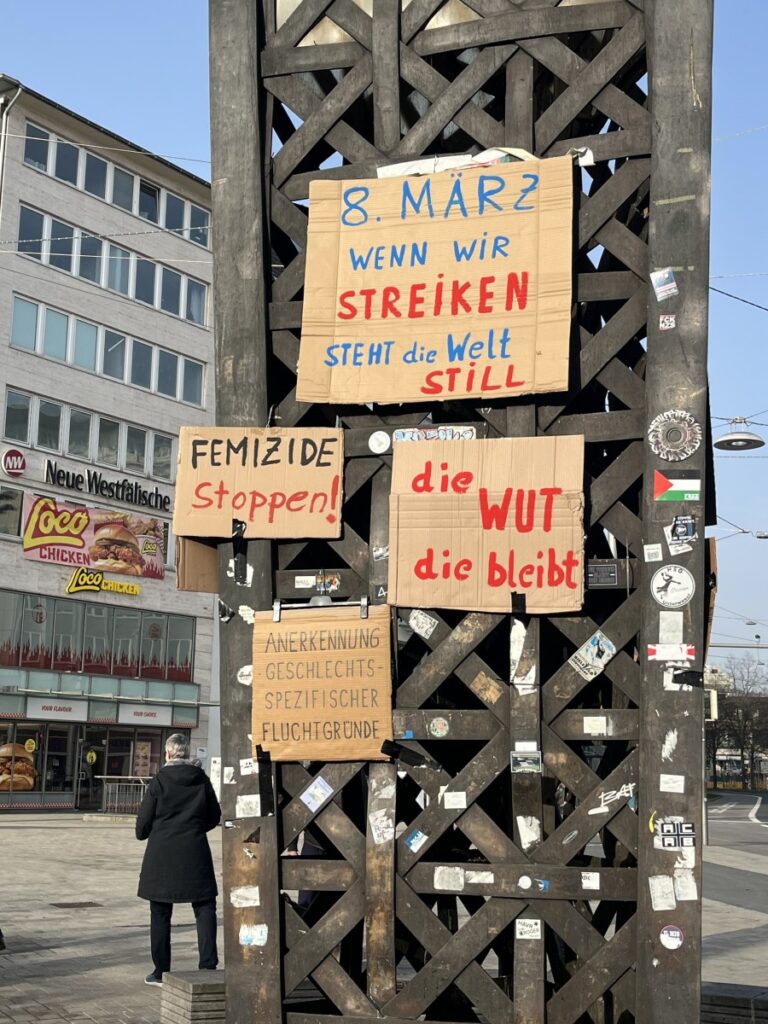 8. MÄRZ
WENN WIR
STREIKEN
STEHT die Welt
STILL
FEMIZIDE
Stoppen!
die
WUT
die bleibt
ANERKENNUNG
GESCHLECHTS-
SPEZIFISCHER
FLUCHTGRÜNDE
NW
Neue Westfälische
Loco
CHICKEN
Loco CHICKEN
YOUR FLAVOUR
YOUR CHOICE
FCK
NZS